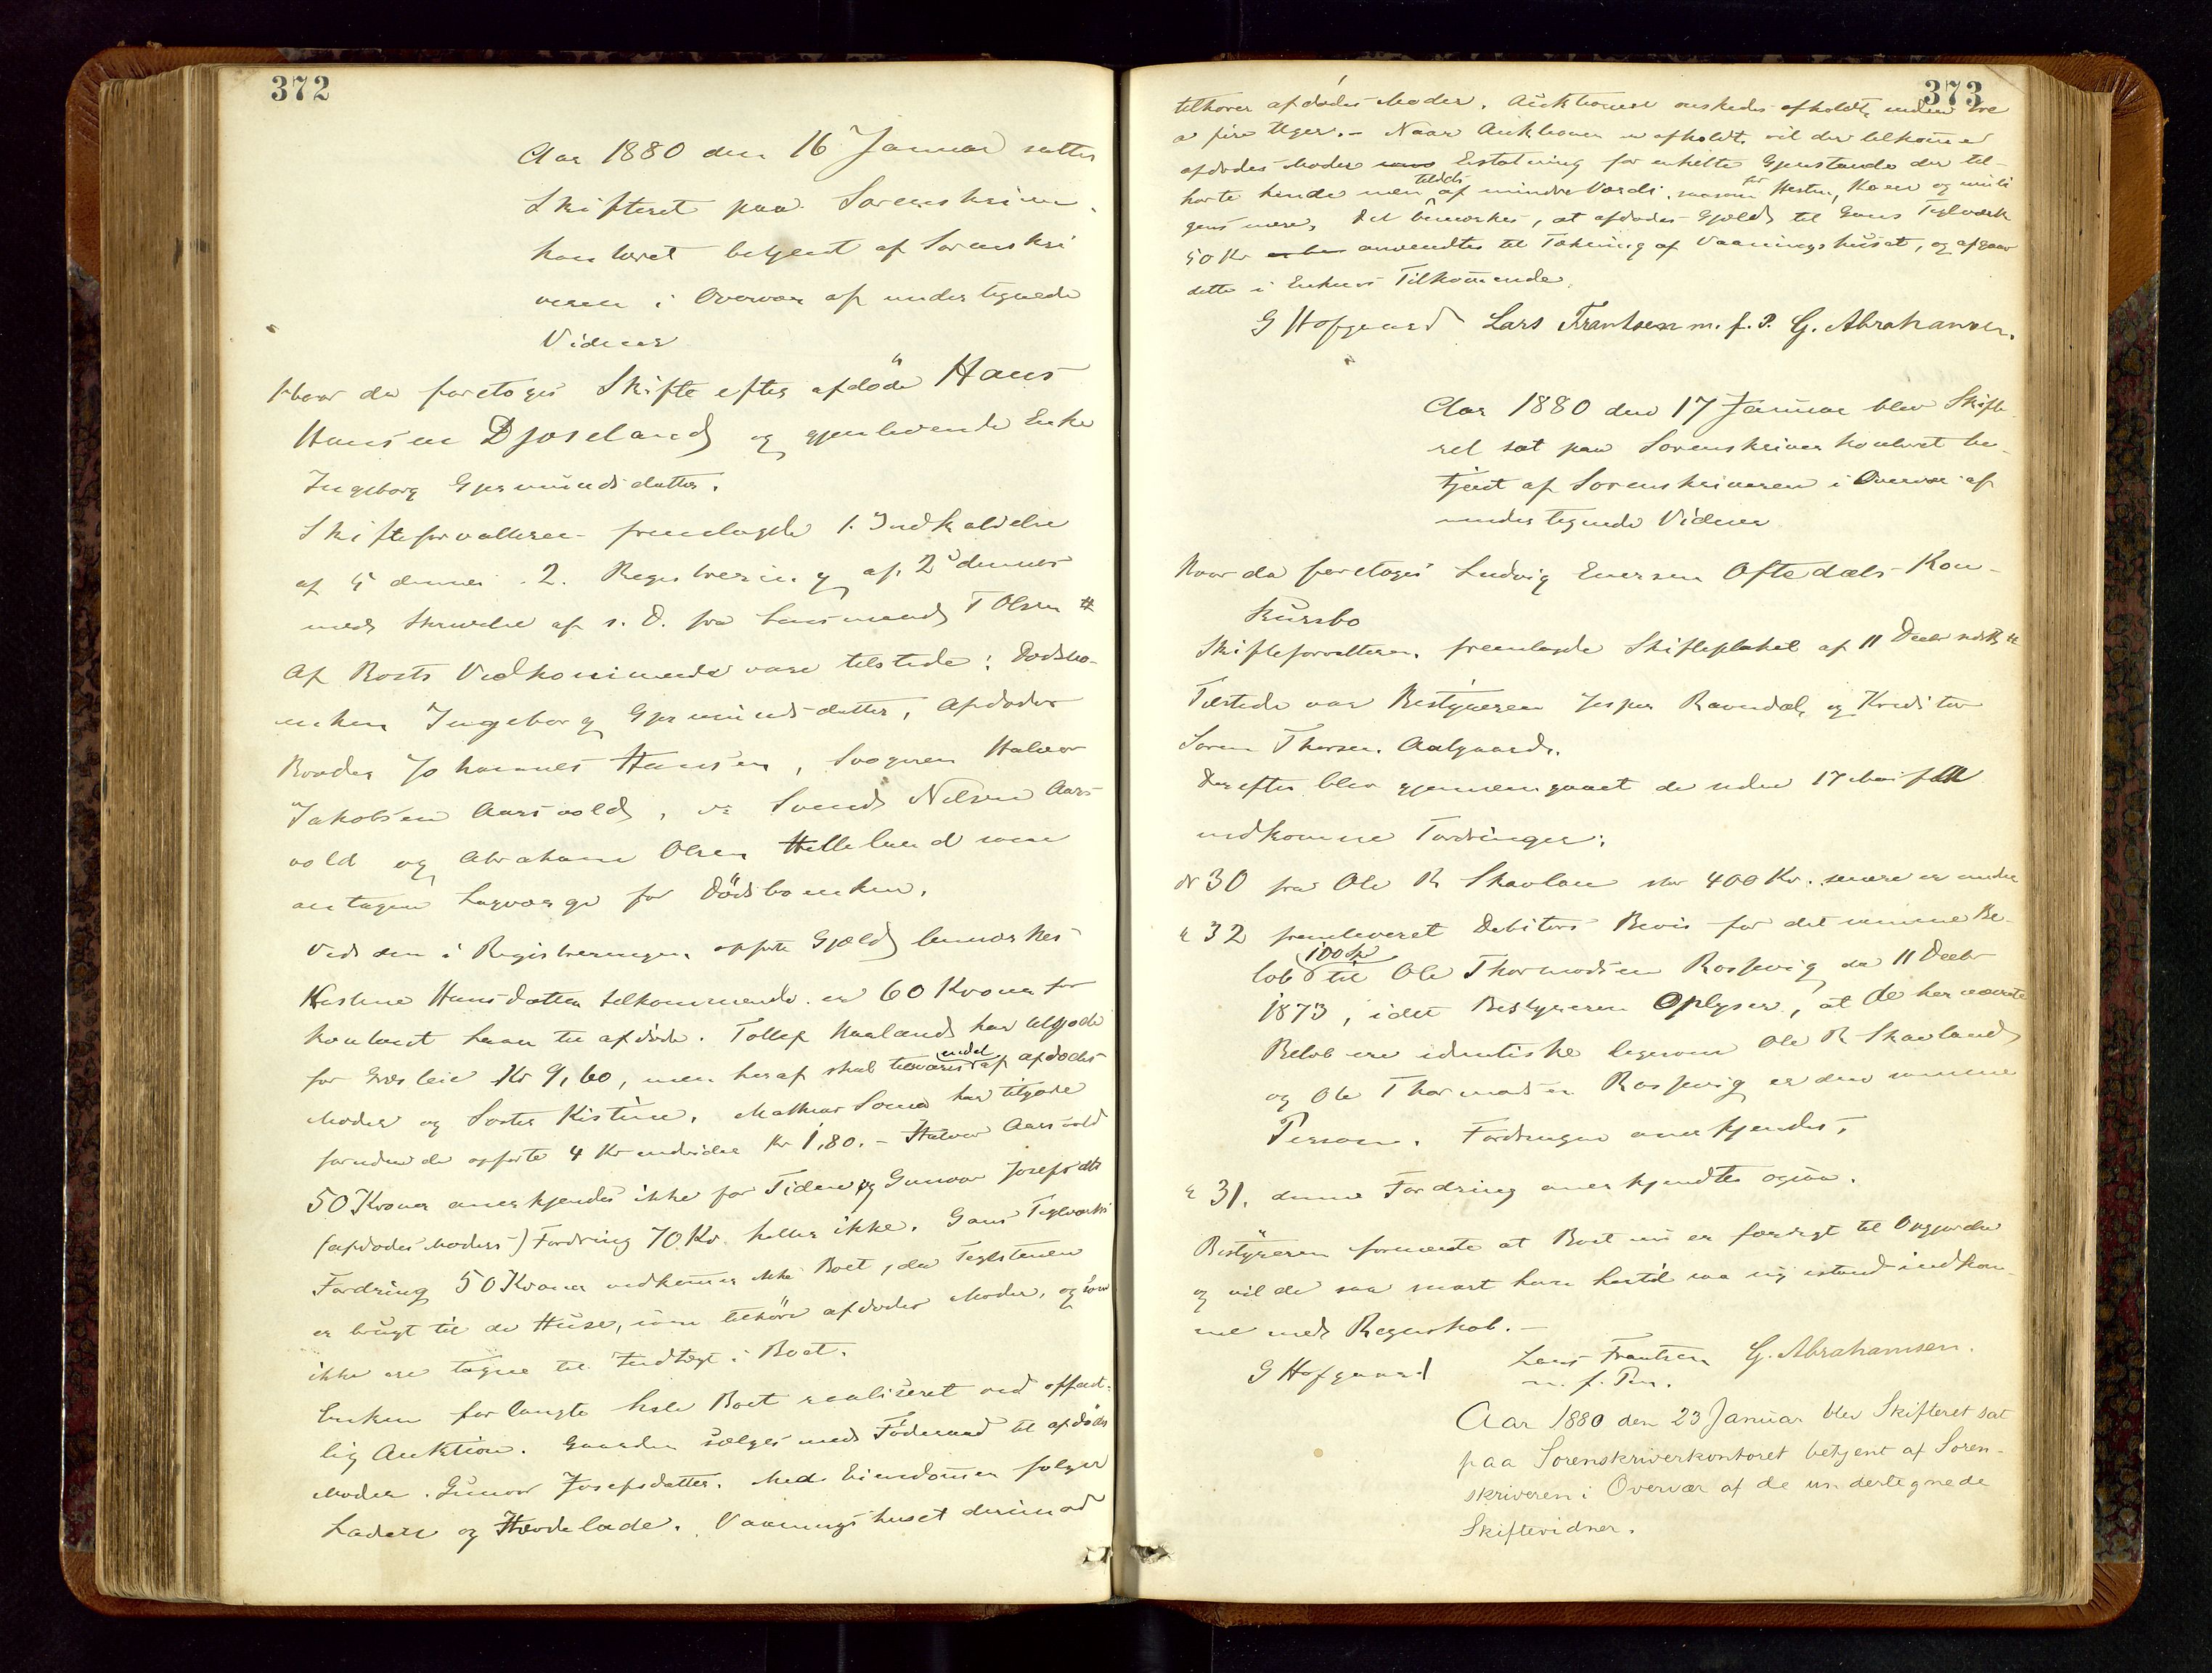 372
Aar 1880 den 16 Januar sattes
Skifteret paa Sorenskriver-
kontoret betjent af Sorenskri
veren i Overvær af undertegnede
Vidner
Hvor da foretoges Skifte efter afdøde Hans
Hansen Djoseland og gjenlevende Enke
Ingeborg Gjermundsdatter.
Skifteforvalteren fremlagde 1. Indkaldelse
af 5 dennes. 2. Registrering af 2 dennes
med Skrivelse af s. D. fra Lensmand T Olsen #
Af Boets Vedkommende vare tilstede: Dødsbo-
enken Ingeborg Gjermundsdatter, Afdødes
Broder Johannes Hansen, Svogeren Halvor
Jakobsen Aarsvold, Svend Nilsen Aars-
vold og Abraham Olsen Helleland som
antagen Lagværge for Dødsboenken.
Ved den i Registreringen opførte Gjæld bemærkes
Kistine Hansdatter tilkommende er 60 Kroner for
kontant laan til afdøde. Tollef Haaland har tilgode
for Græsleie Kr 9,60, men heraf skal tilsvares endel af afdødes
Moder og Søster Kistine. Mathias Soma har tilgode
foruden de opførte 4 Kr endvidere Kr 1,80. – Halvor Aarsvold
50 Kroner anerkjendes ikke for Tiden og Gunvor Josefsdtr
(afdødes Moders) Fordring 70 Kr. heller ikke. Gans Teglværks
Fordring 50 Kroner vedkommer ikke Boet, da Teglstenen
er brugt til de Huse, som tilhøre afdødes Moder, og som
ikke ere tagne til Indtægt i Boet.
Enken forlangte hele Boet realiseret ved offent-
lig Auktion. Gaarden sælges med Føderaad til afdødes
Moder Gunvor Josefsdatter. Med Eiendommen følger
Laden og Høvdelade. Vaaningshuset derimod
373
tilhører afdødes Moder. Auktionen ønskedes afholdt inden tre
a fire Uger. – Naar Auktionen er afholdt vil der tilkomme
afdødes Moder Erstatning for enkelte Gjenstande der til-
hørte hende men tildels af mindre Værdi, saasom for Hesten, Koen og muli
gens mere. Det bemærkes, at afdødes Gjæld til Gans Teglværk
50 Kr anvendtes til Tækning af Vaaningshuset, og afgaar
dette i Enkens Tilkommende.
G Hofgaard Lars Frantsen m. f. P. G. Abrahamsen.
Aar 1880 den 17 Januar blev Skifte-
ret sat paa Sorenskriverkontoret be-
tjent af Sorenskriveren i Overvær af
undertegnede Vidner
Hvor da foretoges Ludvig Enersen Oftedals Kon-
kursbo
Skifteforvalteren fremlagde Skifteplakat af 11 Decbr
Tilstede var Bestyreren Jesper Ravndal og Kreditor
Søren Thorsen Aalgaard.
Derefter blev gjennemgaaet de siden 17 Mai
indkomne Fordringer:
№ 30 fra Ole R Skavlan stor 400 Kr. senere er under
" 32 fremleveret Debitors Bevis for det samme Be-
løb 100 Sp til Ole Thormodsen Rossevig da 11 Decbr
1873, idet Bestyreren Oplyser, at de her nævnte
Beløb ere identiske ligesom Ole R Skavland
og Ole Thormodsen Rossevig er den samme
Person. Fordringen anerkjendes.
" 31. denne Fordring anerkjendtes ogsaa.
Bestyreren formente at Boet nu er færdigt til Opgjørelse
og vilde saa snart han hertil saa sig istand indkom-
me med Regnskab. –
G Hofgaard Lars Frantsen G. Abrahamsen.
m. f. Pen.
Aar 1880 den 23 Januar blev Skifteret sat
paa Sorenskriverkontoret betjent af Soren-
skriveren i Overvær af de undertegnede
Skiftevidner.